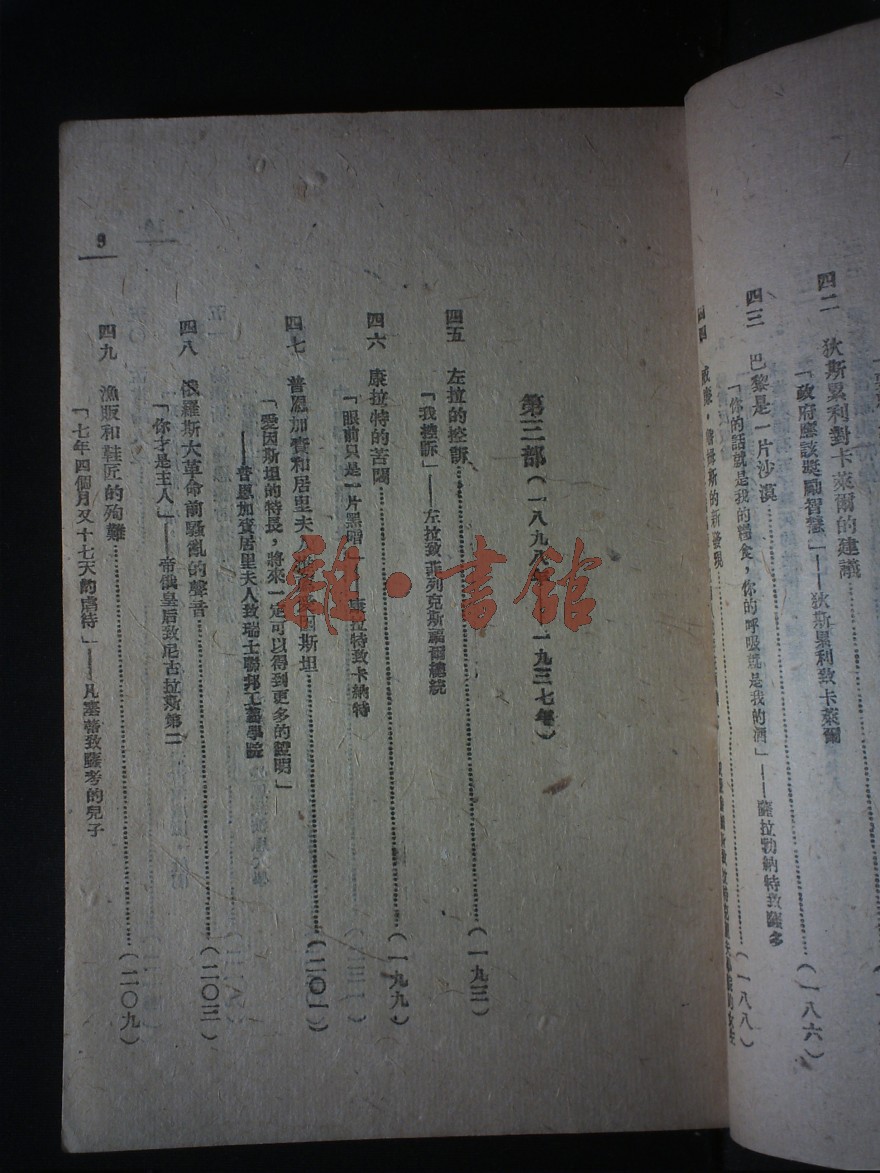 四二　狄斯累利對卡萊爾的建議……（一八六）
「政府應該獎勵智慧」——狄斯累利致卡萊爾
四三　巴黎是一片沙漠……（一八八）
「你的話就是我的糧食，你的呼吸就是我的酒」——薩拉勃納特致薩多
詹姆斯的新發現
第三部（一八九八年　一九三七年）
四五　左拉的控訴……（一九三）
「我控訴」——左拉致菲列克斯福爾總統
四六　康拉特的苦悶……（一九九）
「眼前只是一片黑暗」　康拉特致卡納特
四七　普恩加賚和居里夫人　因斯坦……（二〇一）
「愛因斯坦的特長，將來一定可以得到更多的證明」——
——普恩加賚居里夫人致瑞士聯邦工藝學院
四八　俄羅斯大革命前騷亂的聲音……（二〇三）
「你才是主人」——帝俄皇后致尼古拉斯第二
四九　漁販和鞋匠的殉難……（二〇九）
「七年四個月又十七天的虐待」——凡塞蒂致薩考的兒子
9
雜·書館